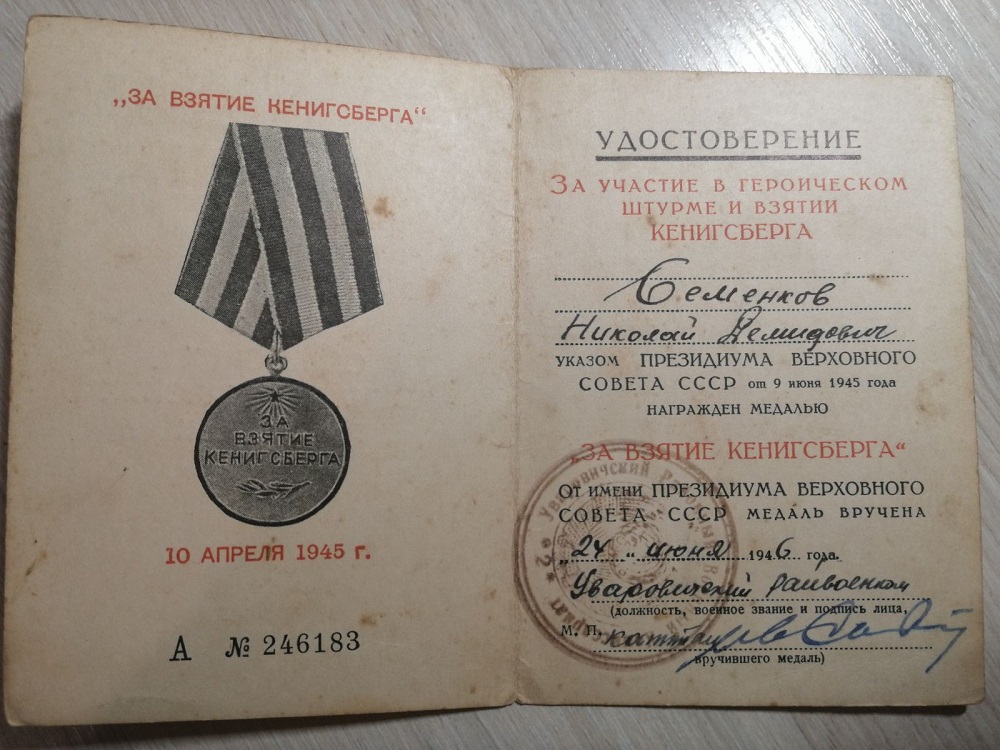 „ЗА ВЗЯТИЕ КЕНИГСБЕРГА“
ЗА
ВЗЯТИЕ
КЕНИГСБЕРГА
10 АПРЕЛЯ 1945 г.
А № 246183
УДОСТОВЕРЕНИЕ
ЗА УЧАСТИЕ В ГЕРОИЧЕСКОМ
ШТУРМЕ И ВЗЯТИИ
КЕНИГСБЕРГА
Семенков
Николай Демидович
УКАЗОМ ПРЕЗИДИУМА ВЕРХОВНОГО
СОВЕТА СССР от 9 июня 1945 года
НАГРАЖДЕН МЕДАЛЬЮ
„ЗА ВЗЯТИЕ КЕНИГСБЕРГА“
ОТ ИМЕНИ ПРЕЗИДИУМА ВЕРХОВНОГО
СОВЕТА СССР МЕДАЛЬ ВРУЧЕНА
„24 „ июня 1946 года.
Уваровичский райвоенком
(должность, военное звание и подпись лица,
М. П.
вручившего медаль)
Уваровичский